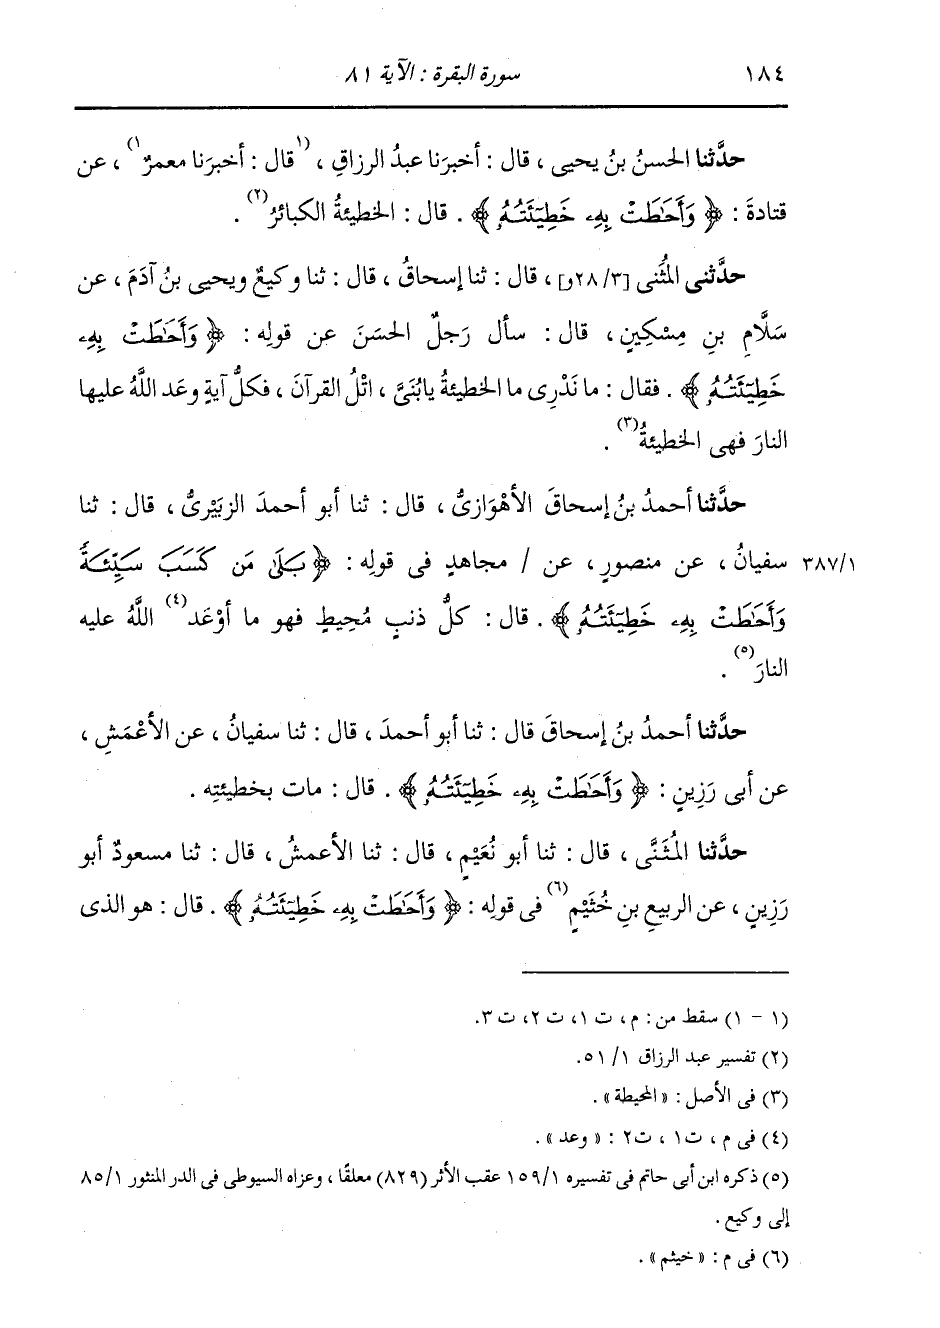 ١٨٤ سورة البقرة : الآية ٨١
حدَّثنا الحسنُ بنُ يحيى ، قال : أخبرَنا عبدُ الرزاقِ ، (١قال : أخبرَنا معمرٌ١) ، عن
قتادةَ : ﴿ وَأَحَٰطَتْ بِهِۦ خَطِيٓـَٔتُهُۥ ﴾ . قال : الخطيئةُ الكبائرُ(٢) .
حدَّثنى المُثَنى [٢٨/٣و] ، قال : ثنا إسحاقُ ، قال : ثنا وكيعٌ ويحيى بنُ آدَمَ ، عن
سَلَّامِ بنِ مِسْكِينٍ ، قال : سأل رَجلٌ الحسَنَ عن قولِه : ﴿ وَأَحَٰطَتْ بِهِۦ
خَطِيٓـَٔتُهُۥ ﴾ . فقال : ما نَدْرِى ما الخطيئةُ يابُنَىَّ ، اتْلُ القرآنَ ، فكلُّ آيةٍ وعَد اللَّهُ عليها
النارَ فهى الخطيئةُ(٣) .
حدَّثنا أحمدُ بنُ إسحاقَ الأهْوَازىُّ ، قال : ثنا أبو أحمدَ الزبَيْرىُّ ، قال : ثنا
٣٨٧/١ سفيانُ ، عن منصورٍ ، عن / مجاهدٍ فى قولِه : ﴿ بَلَىٰ مَن كَسَبَ سَيِّئَةً
وَأَحَٰطَتْ بِهِۦ خَطِيٓـَٔتُهُۥ ﴾ . قال : كلُّ ذنبٍ مُحِيطٍ فهو ما أوْعَد(٤) اللَّهُ عليه
النارَ(٥) .
حدَّثنا أحمدُ بنُ إسحاقَ قال : ثنا أبو أحمدَ ، قال : ثنا سفيانُ ، عن الأعْمَشِ ،
عن أبى رَزِينٍ : ﴿ وَأَحَٰطَتْ بِهِۦ خَطِيٓـَٔتُهُۥ ﴾ . قال : مات بخطيئتِه .
حدَّثنا المُثَنَّى ، قال : ثنا أبو نُعَيْمٍ ، قال : ثنا الأعمشُ ، قال : ثنا مسعودٌ أبو
رَزِينٍ ، عن الربيعِ بنِ خُثَيْمٍ(٦) فى قولِه : ﴿ وَأَحَٰطَتْ بِهِۦ خَطِيٓـَٔتُهُۥ ﴾ . قال : هو الذى
(١ - ١) سقط من : م ، ت ١، ت ٢، ت ٣.
(٢) تفسير عبد الرزاق ١/ ٥١.
(٣) فى الأصل : « المحيطة » .
(٤) فى م ، ت١ ، ت٢ : « وعد » .
(٥) ذكره ابن أبى حاتم فى تفسيره ١٥٩/١ عقب الأثر (٨٢٩) معلقًا ، وعزاه السيوطى فى الدر المنثور ٨٥/١
إلى وكيع .
(٦) فى م : « خيثم » .